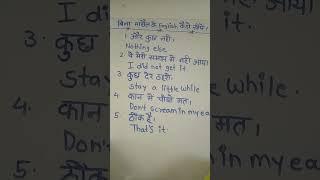 बिना के English कैसे सीखे।
1 और कुछ नही।
Nothing else
2. ये मेरी समझ में नहीं आया
I did not get it.
3 कुछ देर ठहरो।
Stay a little while.
4. कान में चीखो मत।
Don't scream in my ea
5. ठीक है।
That's it.